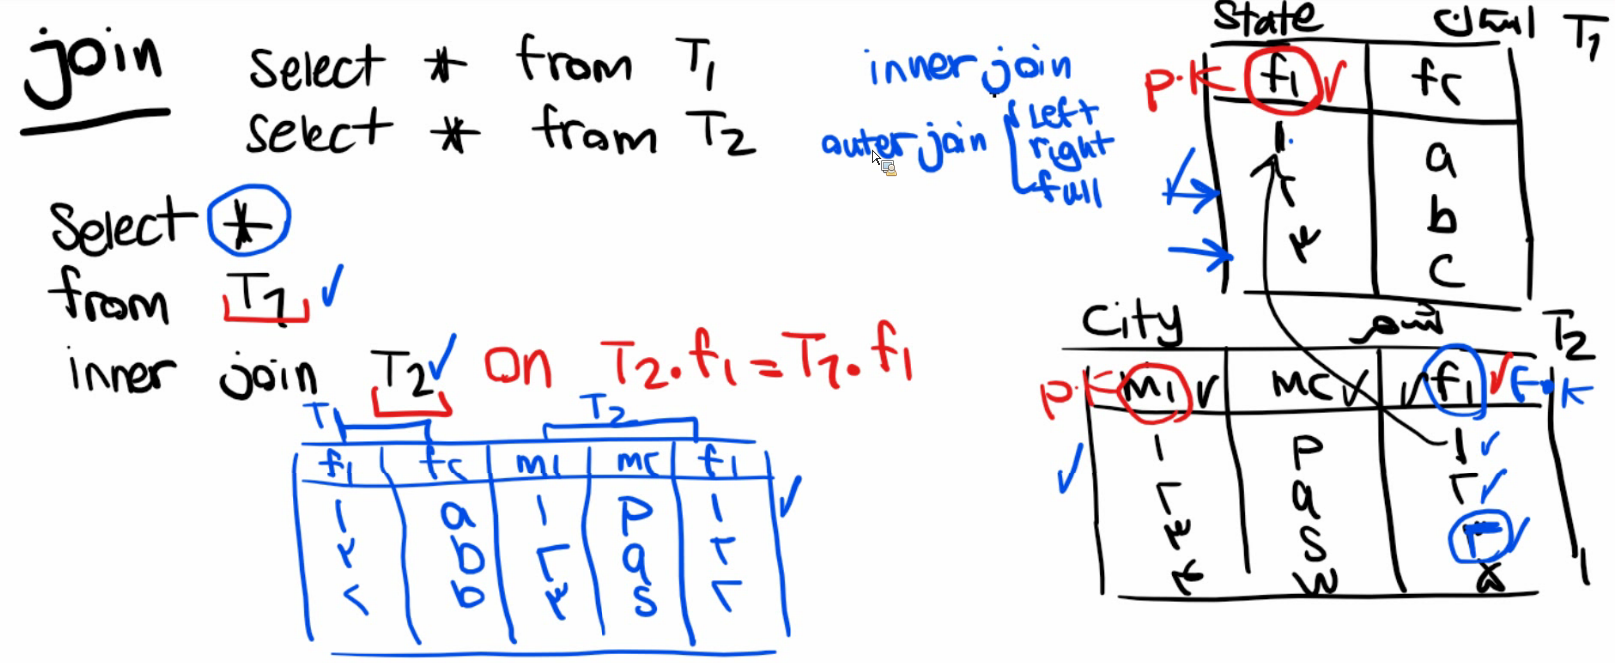 join
Select * from T1
Select * from T2
inner join
outer join
Left
right
full
Select *
from T1 ✓
inner join T2 ✓ on T2.f1 = T1.f1
T1 T2
f1 f۲ m1 m۲ f1
۱ a ۱ p ۱ ✓
۲ b ۲ q ۲
۲ b ۳ s ۲
State استان T1
p.k f1 ✓ f۲
۱ a
۲ b
۳ c
City شهر T2
p.k m1 ✓ m۲ ✓ f1 ✓ F.k
۱ p ۱ ✓
۲ q ۲ ✓
۳ s ۲ ✓
۴ w